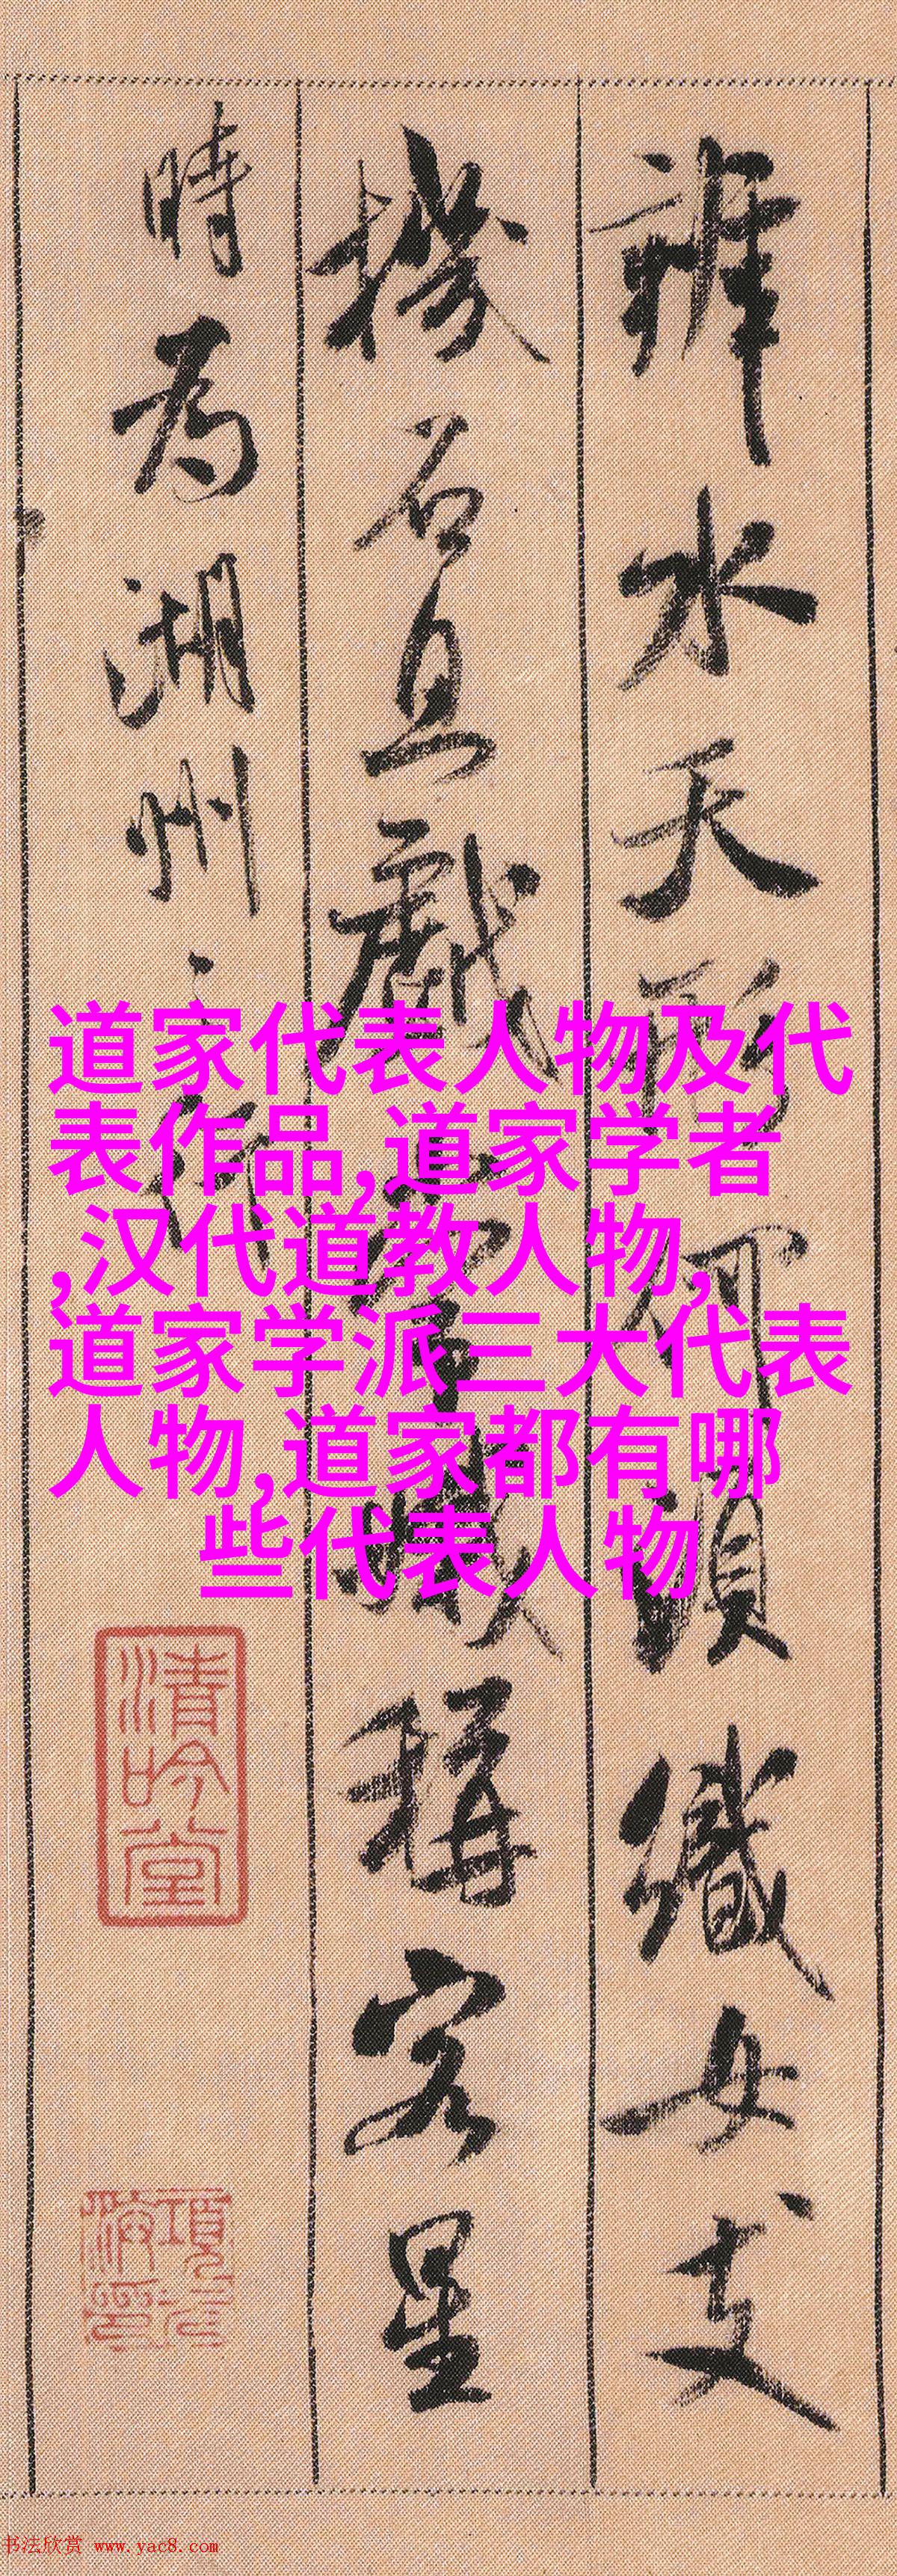 辨水天形何須織女支
機石且戲常娥稱客星
時為湖州之行
道家代表人物及代
表作品,道家学者
,汉代道教人物,
道家学派三大代表
人物,道家都有哪
些代表人物
清吟堂
书法欣赏 www.yac8.com